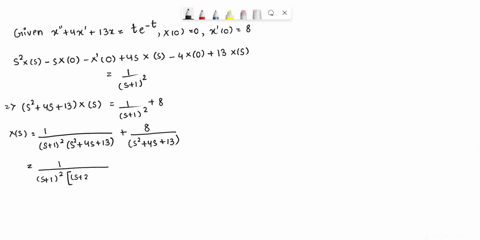 Given x'' + 4x' + 13x = te^-t, x(0) = 0, x'(0) = 8
s² x(s) - s x(0) - x'(0) + 4s x(s) - 4 x(0) + 13 x(s)
= 1/(s+1)²
=> (s² + 4s + 13) x(s) = 1/(s+1)² + 8
x(s) = 1/((s+1)² (s² + 4s + 13)) + 8/(s² + 4s + 13)
= 1/((s+1)² [(s+2